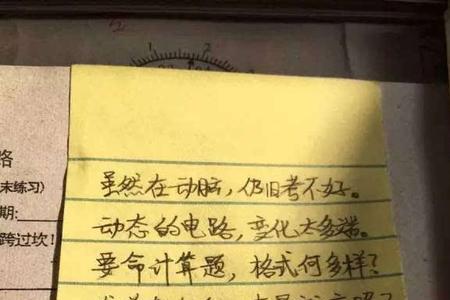 虽然在动脑，仍旧考不好。
动态的电路，变化太多端。
要命计算题，格式何多样？
路
末练习)
期:
跨过坎!